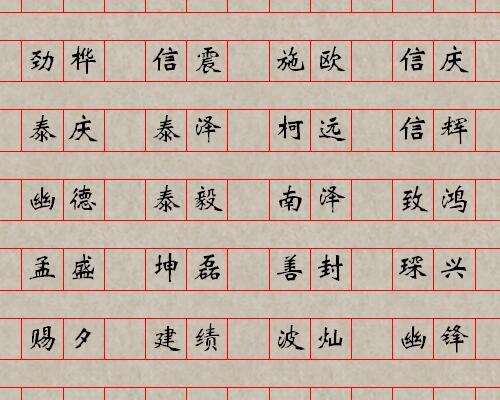 劲桦 信震 施欧 信庆
泰庆 泰泽 柯远 信辉
幽德 泰毅 南泽 致鸿
孟盛 坤磊 善封 琛兴
赐夕 建绩 波灿 幽锋